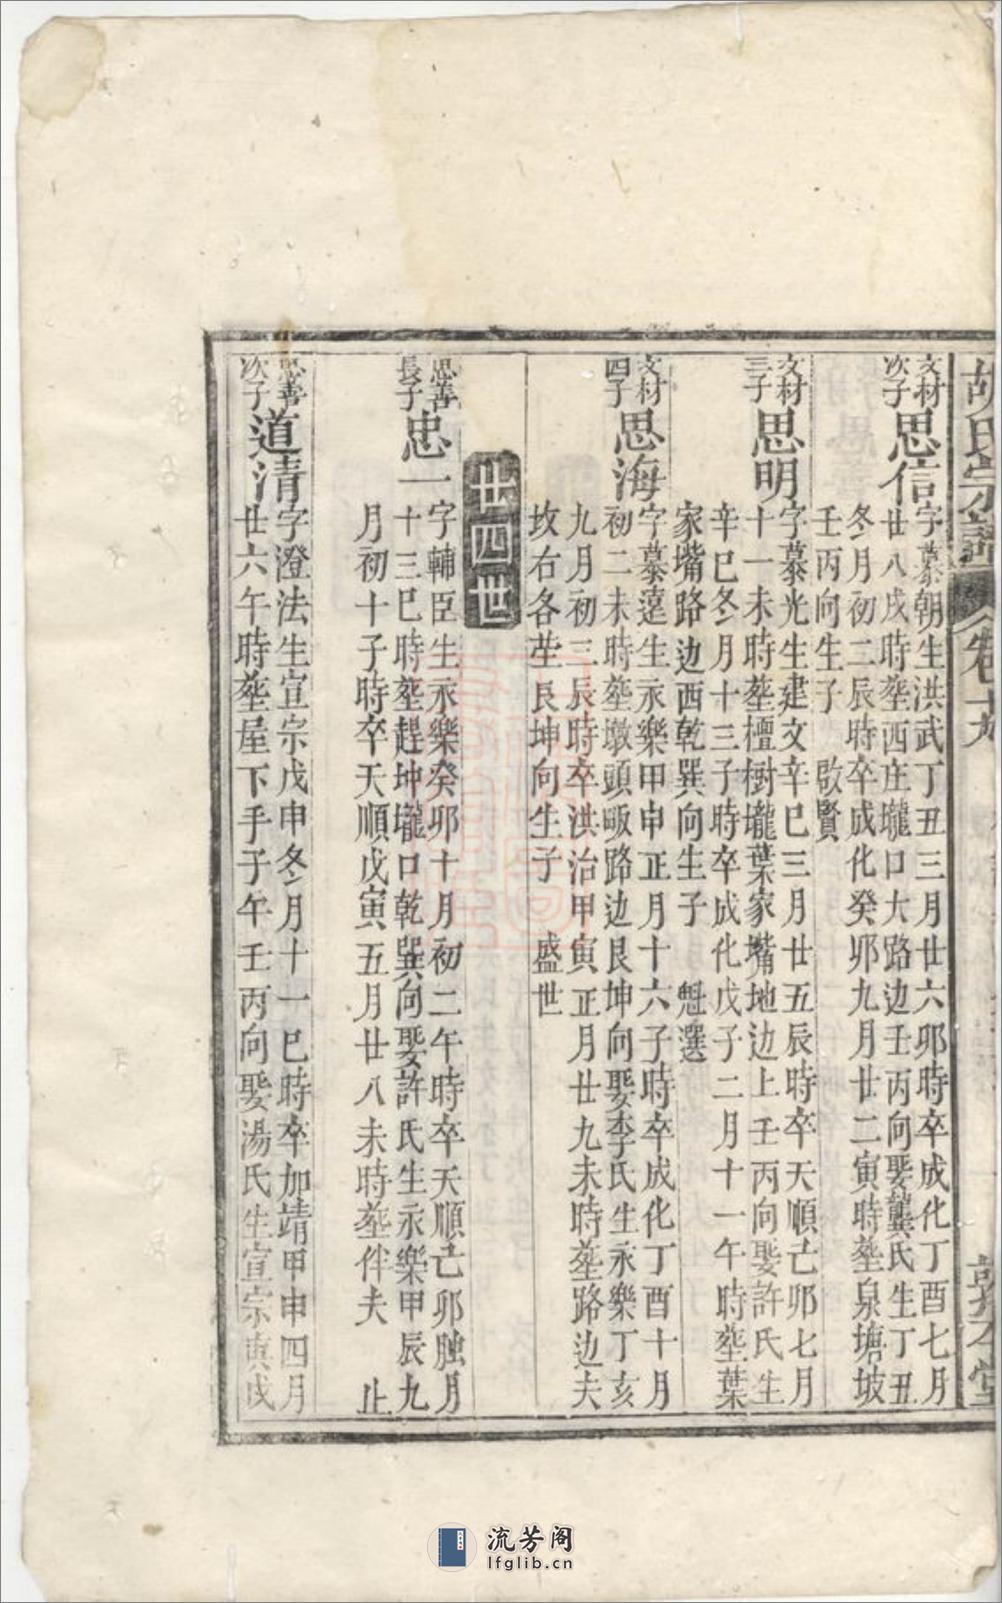 胡氏宗譜 卷十九 敦本堂
文材次子 思信 字慕朝生洪武丁丑三月廿六卯時卒成化丁酉七月
廿八戌時塟西庄壠口大路边壬丙向娶龔氏生丁丑
冬月初二辰時卒成化癸卯九月廿二寅時塟泉塘坡
壬丙向生子 啟賢
文材三子 思明 字慕光生建文辛巳三月廿五辰時卒天順己卯七月
十一未時塟檀樹壠葉家嘴地边上壬丙向娶許氏生
辛巳冬月十三子時卒成化戊子二月十一午時塟葉
家嘴路边酉乾巽向生子 魁選
文材四子 思海 字慕遠生永樂甲申正月十六子時卒成化丁酉十月
初二未時塟墩頭畈路边艮坤向娶李氏生永樂丁亥
九月初三辰時卒洪治甲寅正月廿九未時塟路边夫
坟右各茔艮坤向生子 盛世
廿四世
思善長子 忠一 字輔臣生永樂癸卯十月初二午時卒天順己卯臘月
十三巳時塟趕坤壠口乾巽向娶許氏生永樂甲辰九
月初十子時卒天順戊寅五月廿八未時塟伴夫 止
思善次子 道清 字澄法生宣宗戊申冬月十一巳時卒加靖甲申四月
廿六午時塟屋下手子午壬丙向娶湯氏生宣宗庚戌
流芳阁
lfglib.cn